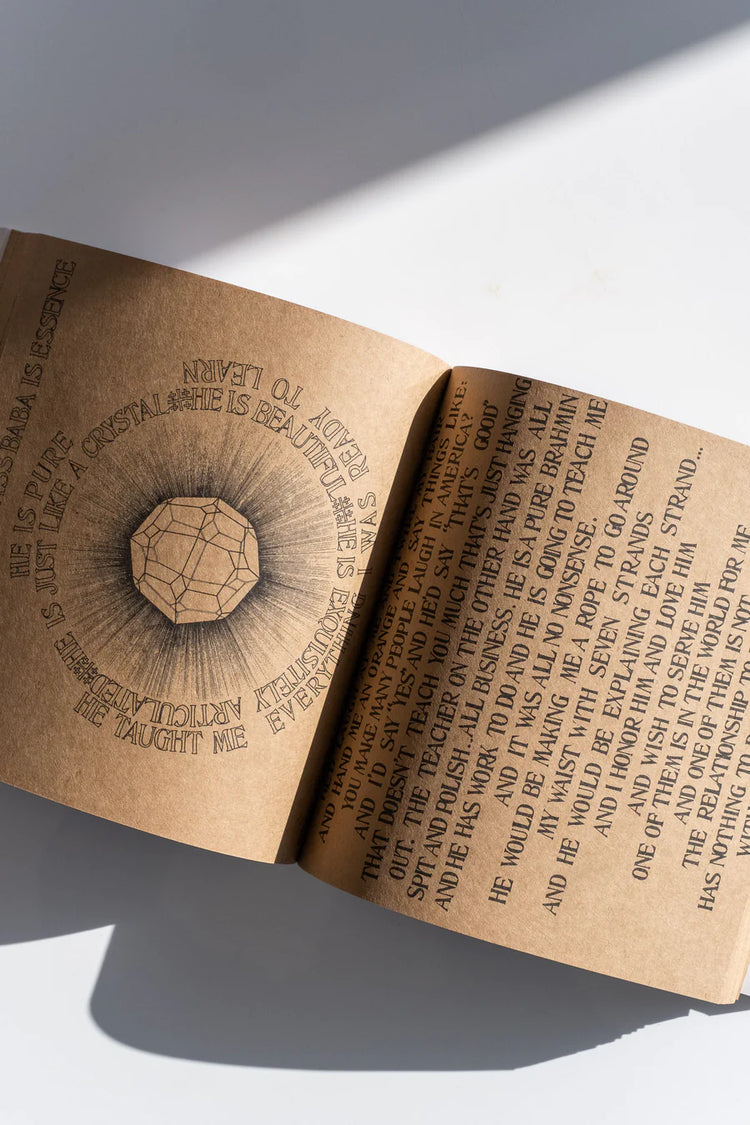 BABA IS ESSENCE
HE IS PURE
HE IS JUST LIKE A CRYSTAL
HE IS BEAUTIFUL
HE IS EXQUISITELY ARTICULATED
HE TAUGHT ME EVERYTHING I WAS READY TO LEARN
AND HAND ME AN ORANGE AND SAY THINGS LIKE:
YOU MAKE MANY PEOPLE LAUGH IN AMERICA?
AND I'D SAY "YES" AND HE'D SAY "THAT'S GOOD"
THAT DOESN'T TEACH YOU MUCH THAT'S JUST HANGING
OUT. THE TEACHER ON THE OTHER HAND WAS ALL
SPIT AND POLISH. ALL BUSINESS. HE IS A PURE BRAHMIN
AND HE HAS WORK TO DO AND HE IS GOING TO TEACH ME
AND IT WAS ALL NO NONSENSE.
HE WOULD BE MAKING ME A ROPE TO GO AROUND
MY WAIST WITH SEVEN STRANDS
AND HE WOULD BE EXPLAINING EACH STRAND...
AND I HONOR HIM AND LOVE HIM
AND WISH TO SERVE HIM
ONE OF THEM IS IN THE WORLD FOR ME
AND ONE OF THEM IS NOT
THE RELATIONSHIP
HAS NOTHING TO